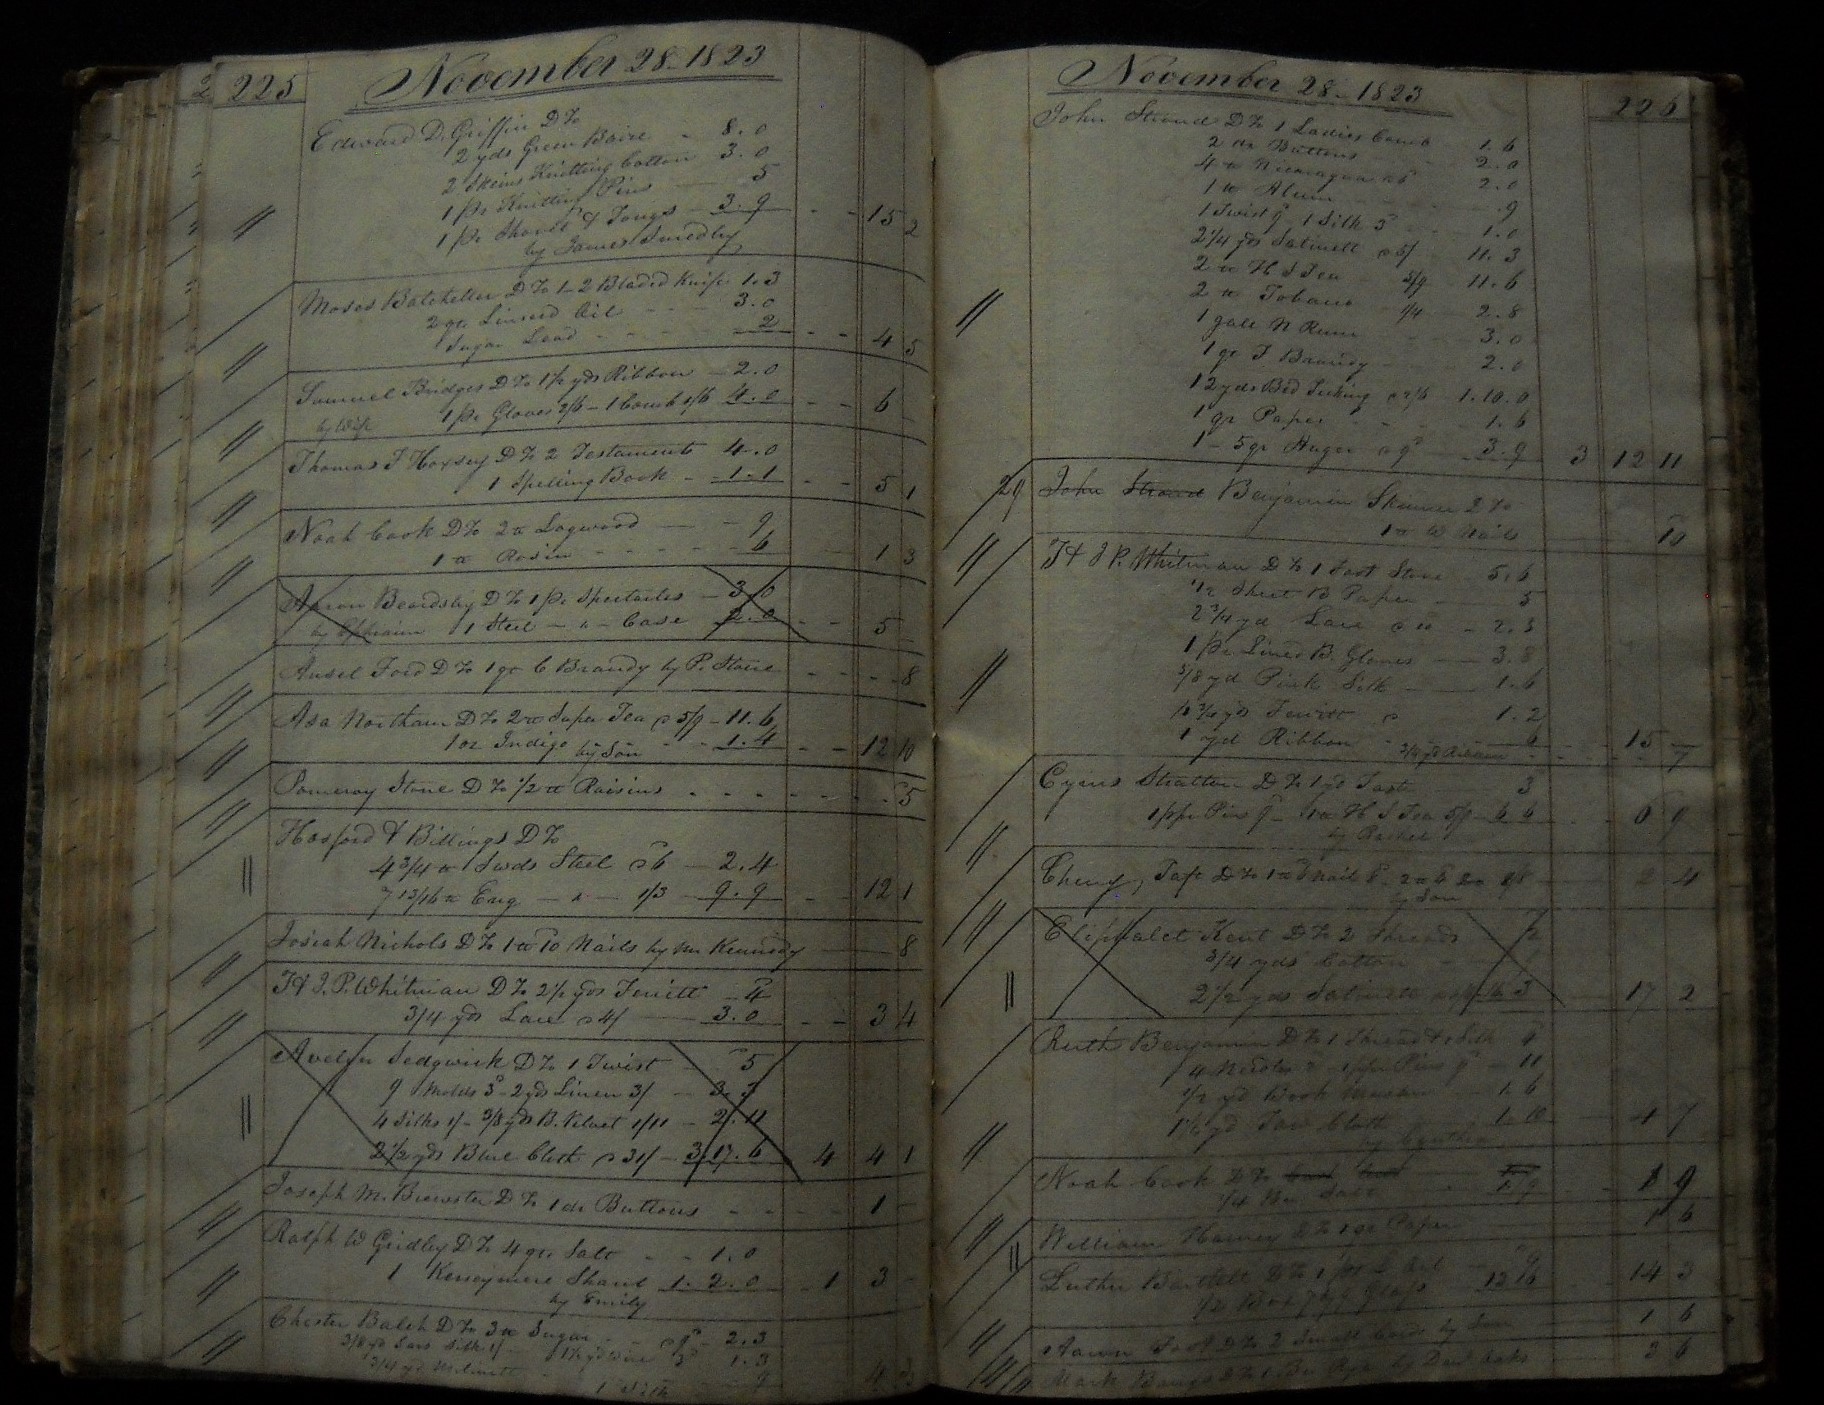 225
November 28 1823
Edward D. Griffin Dr to
2 yds Green Baize - 8.0
2 Skeins Knitting Cotton 3.0
1 pr Knitting Pins 5
1 pr Shovel & Tongs 3.9 15 2
by James Smedley
Moses Batcheller Dr to 1-2 Bladed Knife 1.3
2 qts Linseed Oil 3.0
Sugar Lead 2 4 5
Samuel Bridges Dr to 1 1/2 yds Ribbon 2.0
by Wife 1 pr Gloves 2/6 - 1 Comb 1/6 4.0 6
Thomas F Hoxsey Dr to 2 Testaments 4.0
1 Spelling Book 1.1 5 1
Noah Cook Dr to 2 lb Logwood 9
1 lb Rosin 6 1 3
Aaron Beardsley Dr to 1 pr Spectacles 3.0
by Ephraim 1 Steel Case 2.0 5
Ansel Ford Dr to 1 gr C Brandy by P. Stone 8
Asa Northam Dr to 2 lb Super Tea 5/9 11.6
1 oz Indigo by Son 1.4 12 10
Pomeroy Stone Dr to 1/2 lb Raisins 5
Hosford & Billings Dr to
4 3/4 lb Swds Steel 6 2.4
7 13/16 lb Eng 1/3 9.9 12 1
Josiah Nichols Dr to 1 lb 10 Nails by Mr Kennedy 8
T & J. P. Whitman Dr to 2 1/2 yds Ferritt 4
3/4 yds Lace 4/ 3.0 3 4
Avelyn Sedgwick Dr to 1 Twist 5
9 Molds 3 - 2 yds Linen 3/ 3.3
4 Silks 1/ - 3/8 yds B. Velvet 1/11 2.11
2 1/2 yds Blue Cloth 31/ 3.17.6 4 4 1
Joseph M. Brewster Dr to 1 dz Buttons 1
Ralph W Gridley Dr to 4 qts Salt 1.0
1 Kerseymere Shawl 1.2.0 1 3
by Emily
Chester Balch Dr to 3 lb Sugar 9 2.3
1.3
1 Silk 9
November 28 - 1823
226
John Strand Dr to 1 Ladies Comb 1.6
2 dz Buttons 2.0
4 lb Nicaragua 6 2.0
1 lb Alum 9
1 Twist 9 1 Silk 3 1.0
2 1/4 yds Satinett 5/ 11.3
2 lb H S Tea 5/9 11.6
2 lb Tobacco 1/4 2.8
1 gall N Rum 3.0
1 qt F Brandy 2.0
12 yds Bed Ticking 2/6 1.10.0
1 qr Paper 1.6
1 - 5 qr Auger 9 3.9 3 12 11
29 John Strand Benjamin Skinner Dr to
1 lb W Nails 10
T & J P. Whitman Dr to 1 Foot Stove 5.6
1/2 Sheet B Paper 5
2 3/4 yd Lace 10 2.3
1 pr Lined B. Gloves 3.8
3/8 yd Pink Silk 1.6
3/4 yds Ferritt 1.2
1 yd Ribbon 6
3/4 yd Ribbon 15 7
Cyrus Stratten Dr to 1 yd Tast 3
1 ppr Pins 9 - 1 lb H S Tea 5/9 6 6 6 9
by Rachel
Cheny Taft Dr to 1 lb 6 Nail 2 4
by Son
Eliphalet Kent Dr to 2 Threads 2
3/4 yds Cotton
2 1/2 yds Satinett 17 2
Ruth Benjamin Dr to 1 Thread & 1 Silk
4 Needles - 1 ppr Pins 9 11
1/2 yd Book Muslin 1.6
1 1/2 yd Tow Cloth 1.10 4 7
by Cynthia
Noah Cook Dr to
1/4 Bu Salt 1.9 1 9
William Harvey Dr to 1 qr Paper 1 6
Luther Bartlett Dr to 1 9
1/2 Box 7 by 9 Glass 12.6 14 3
Aaron Foot Dr to 2 Small Cards by Son 1 6
Mark Bangs Dr to 1 3 6